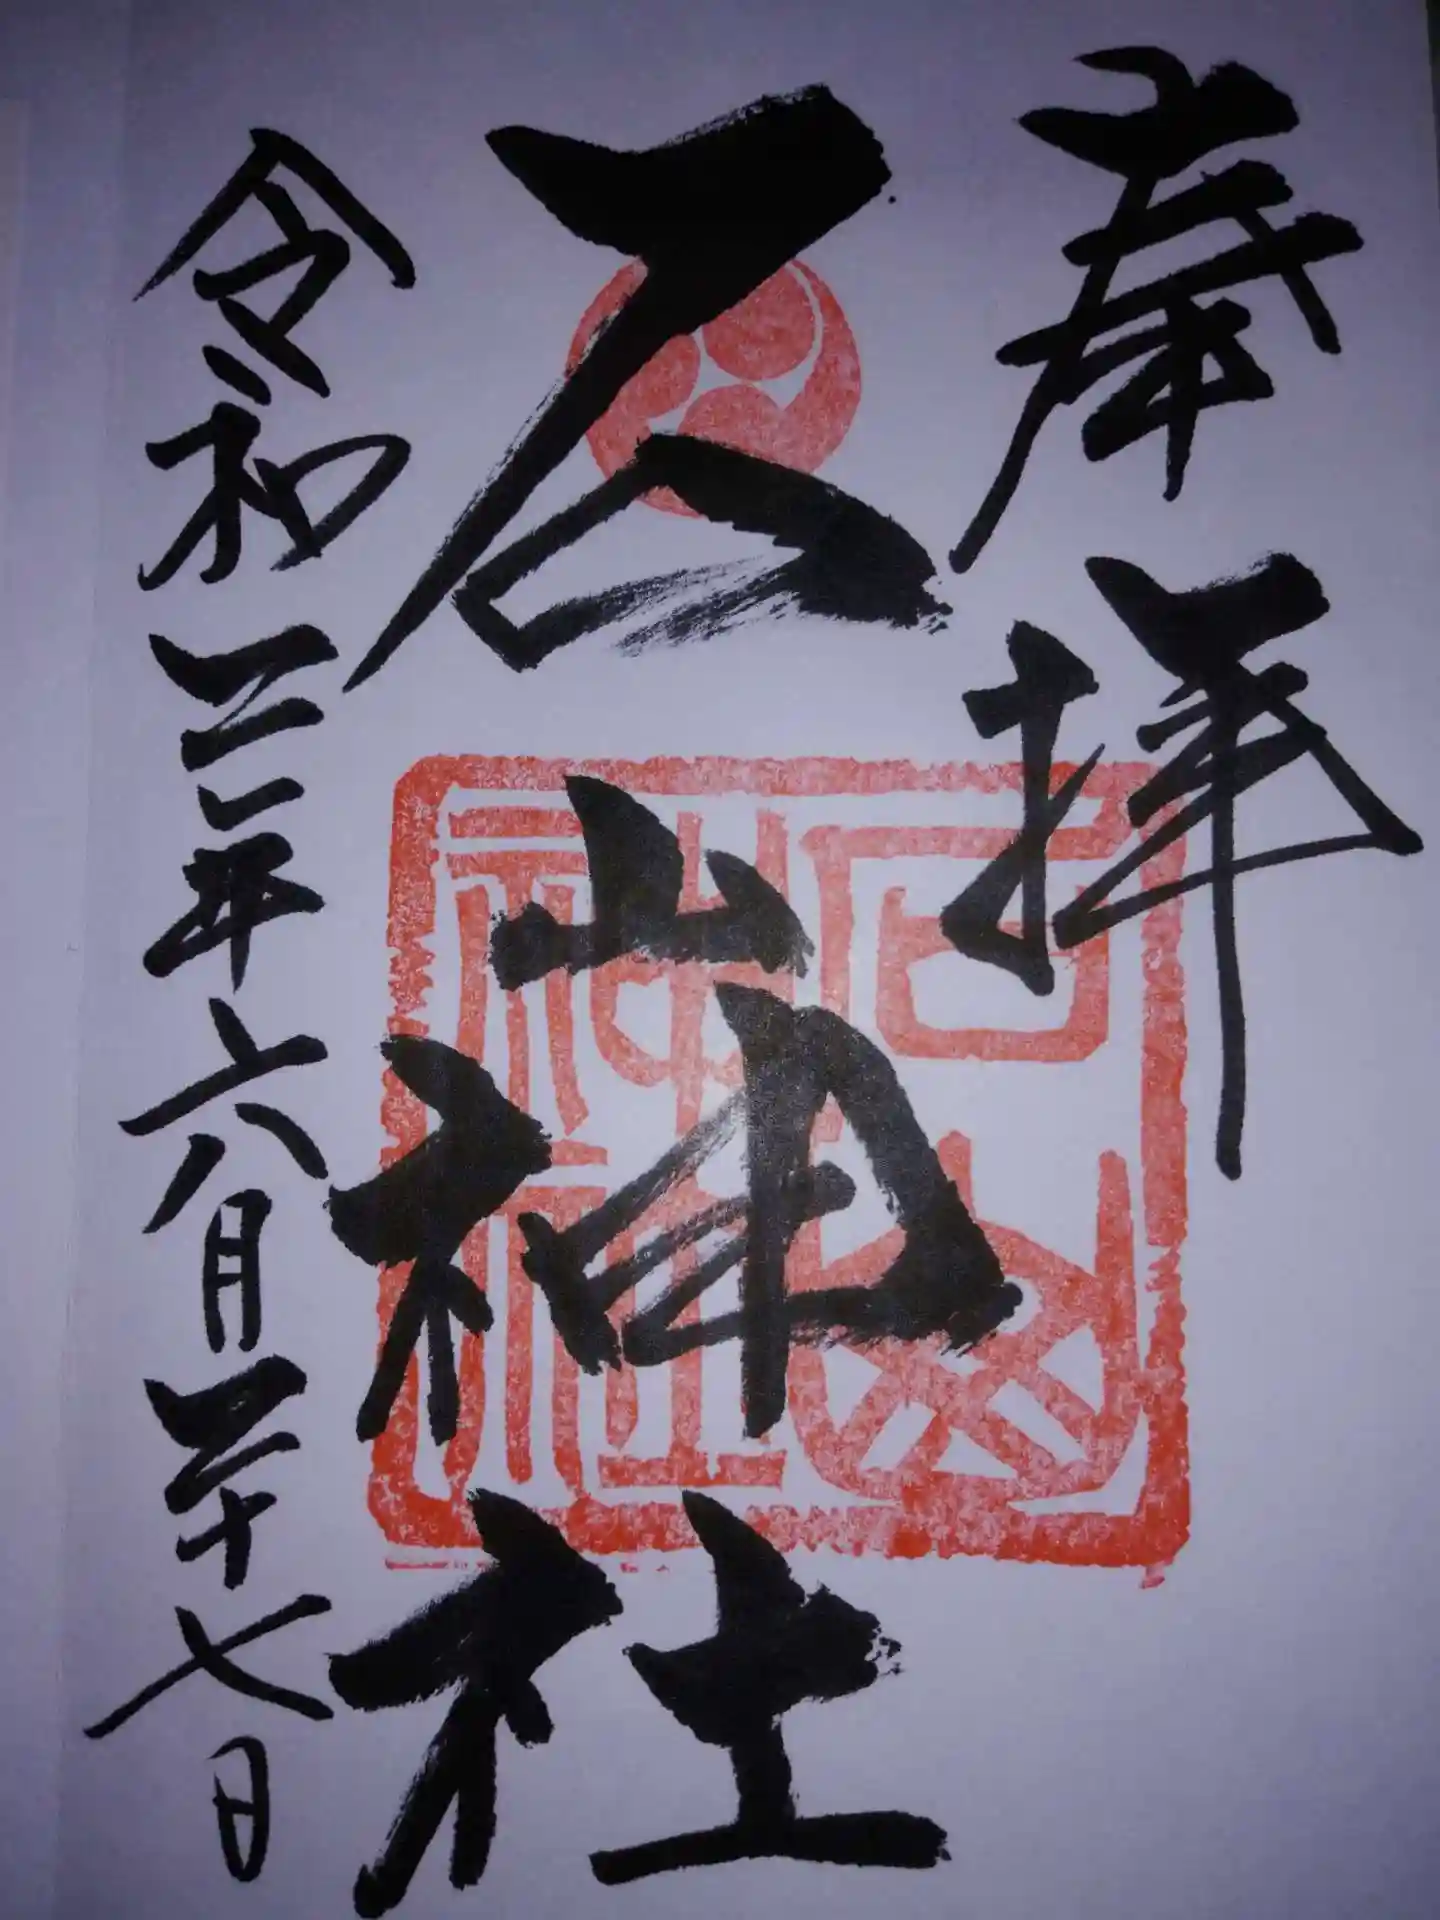 奉拝
石山神社
令和二年六月二十七日
石山
神社